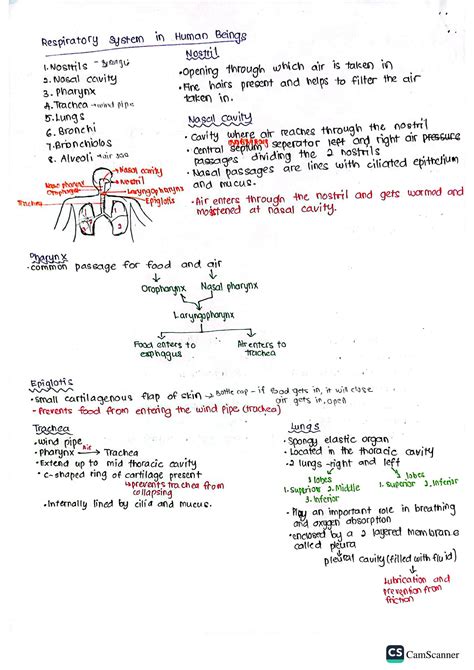 Respiratory System in Human Beings
1. Nostrils
2. Nasal cavity
3. Pharynx
4. Trachea → wind pipe
5. Lungs
6. Bronchi
7. Bronchiolos
8. Alveoli → air sac
Nostril
• Opening through which air is taken in
• Fine hairs present and helps to filter the air
taken in.
Nasal cavity
• Cavity where air reaches through the nostril
• Central septum seperator left and right air pressure
passages dividing the 2 nostrils
• Nasal passages are lines with ciliated epithelium
and mucus.
• Air enters through the nostril and gets warmed and
moistened at nasal cavity.
Nasal cavity
Nostril
Laryngopharynx
Epiglotis
Naso pharynx
Oropharynx
Trachea
1
2
3
1
2
Pharynx
• common passage for food and air
Oropharynx Nasal pharynx
Laryngopharynx
Food enters to
esophagus
Air enters to
trachea
Epiglotis
• small cartilagenous flap of skin → Bottle cap - if food gets in, it will close
air gets in, open
• Prevents food from entering the wind pipe (trachea)
Trachea
• wind pipe
• Pharynx Air → Trachea
• Extend up to mid thoracic cavity
• c-shaped ring of cartilage present
↳ prevents trachea from
collapsing
• Internally lined by cilia and mucus.
Lungs
• Spongy elastic organ
• Located in the thoracic cavity
• 2 lungs -right and left
3 lobes
1. Superior 2. Middle
3. Inferior
2 lobes
1. Superior 2. Inferior
• Play an important role in breathing
and oxygen absorption
• enclosed by a 2 layered membrane
called pleura
pleural cavity (filled with fluid)
Lubrication and
prevention from
friction
CS CamScanner